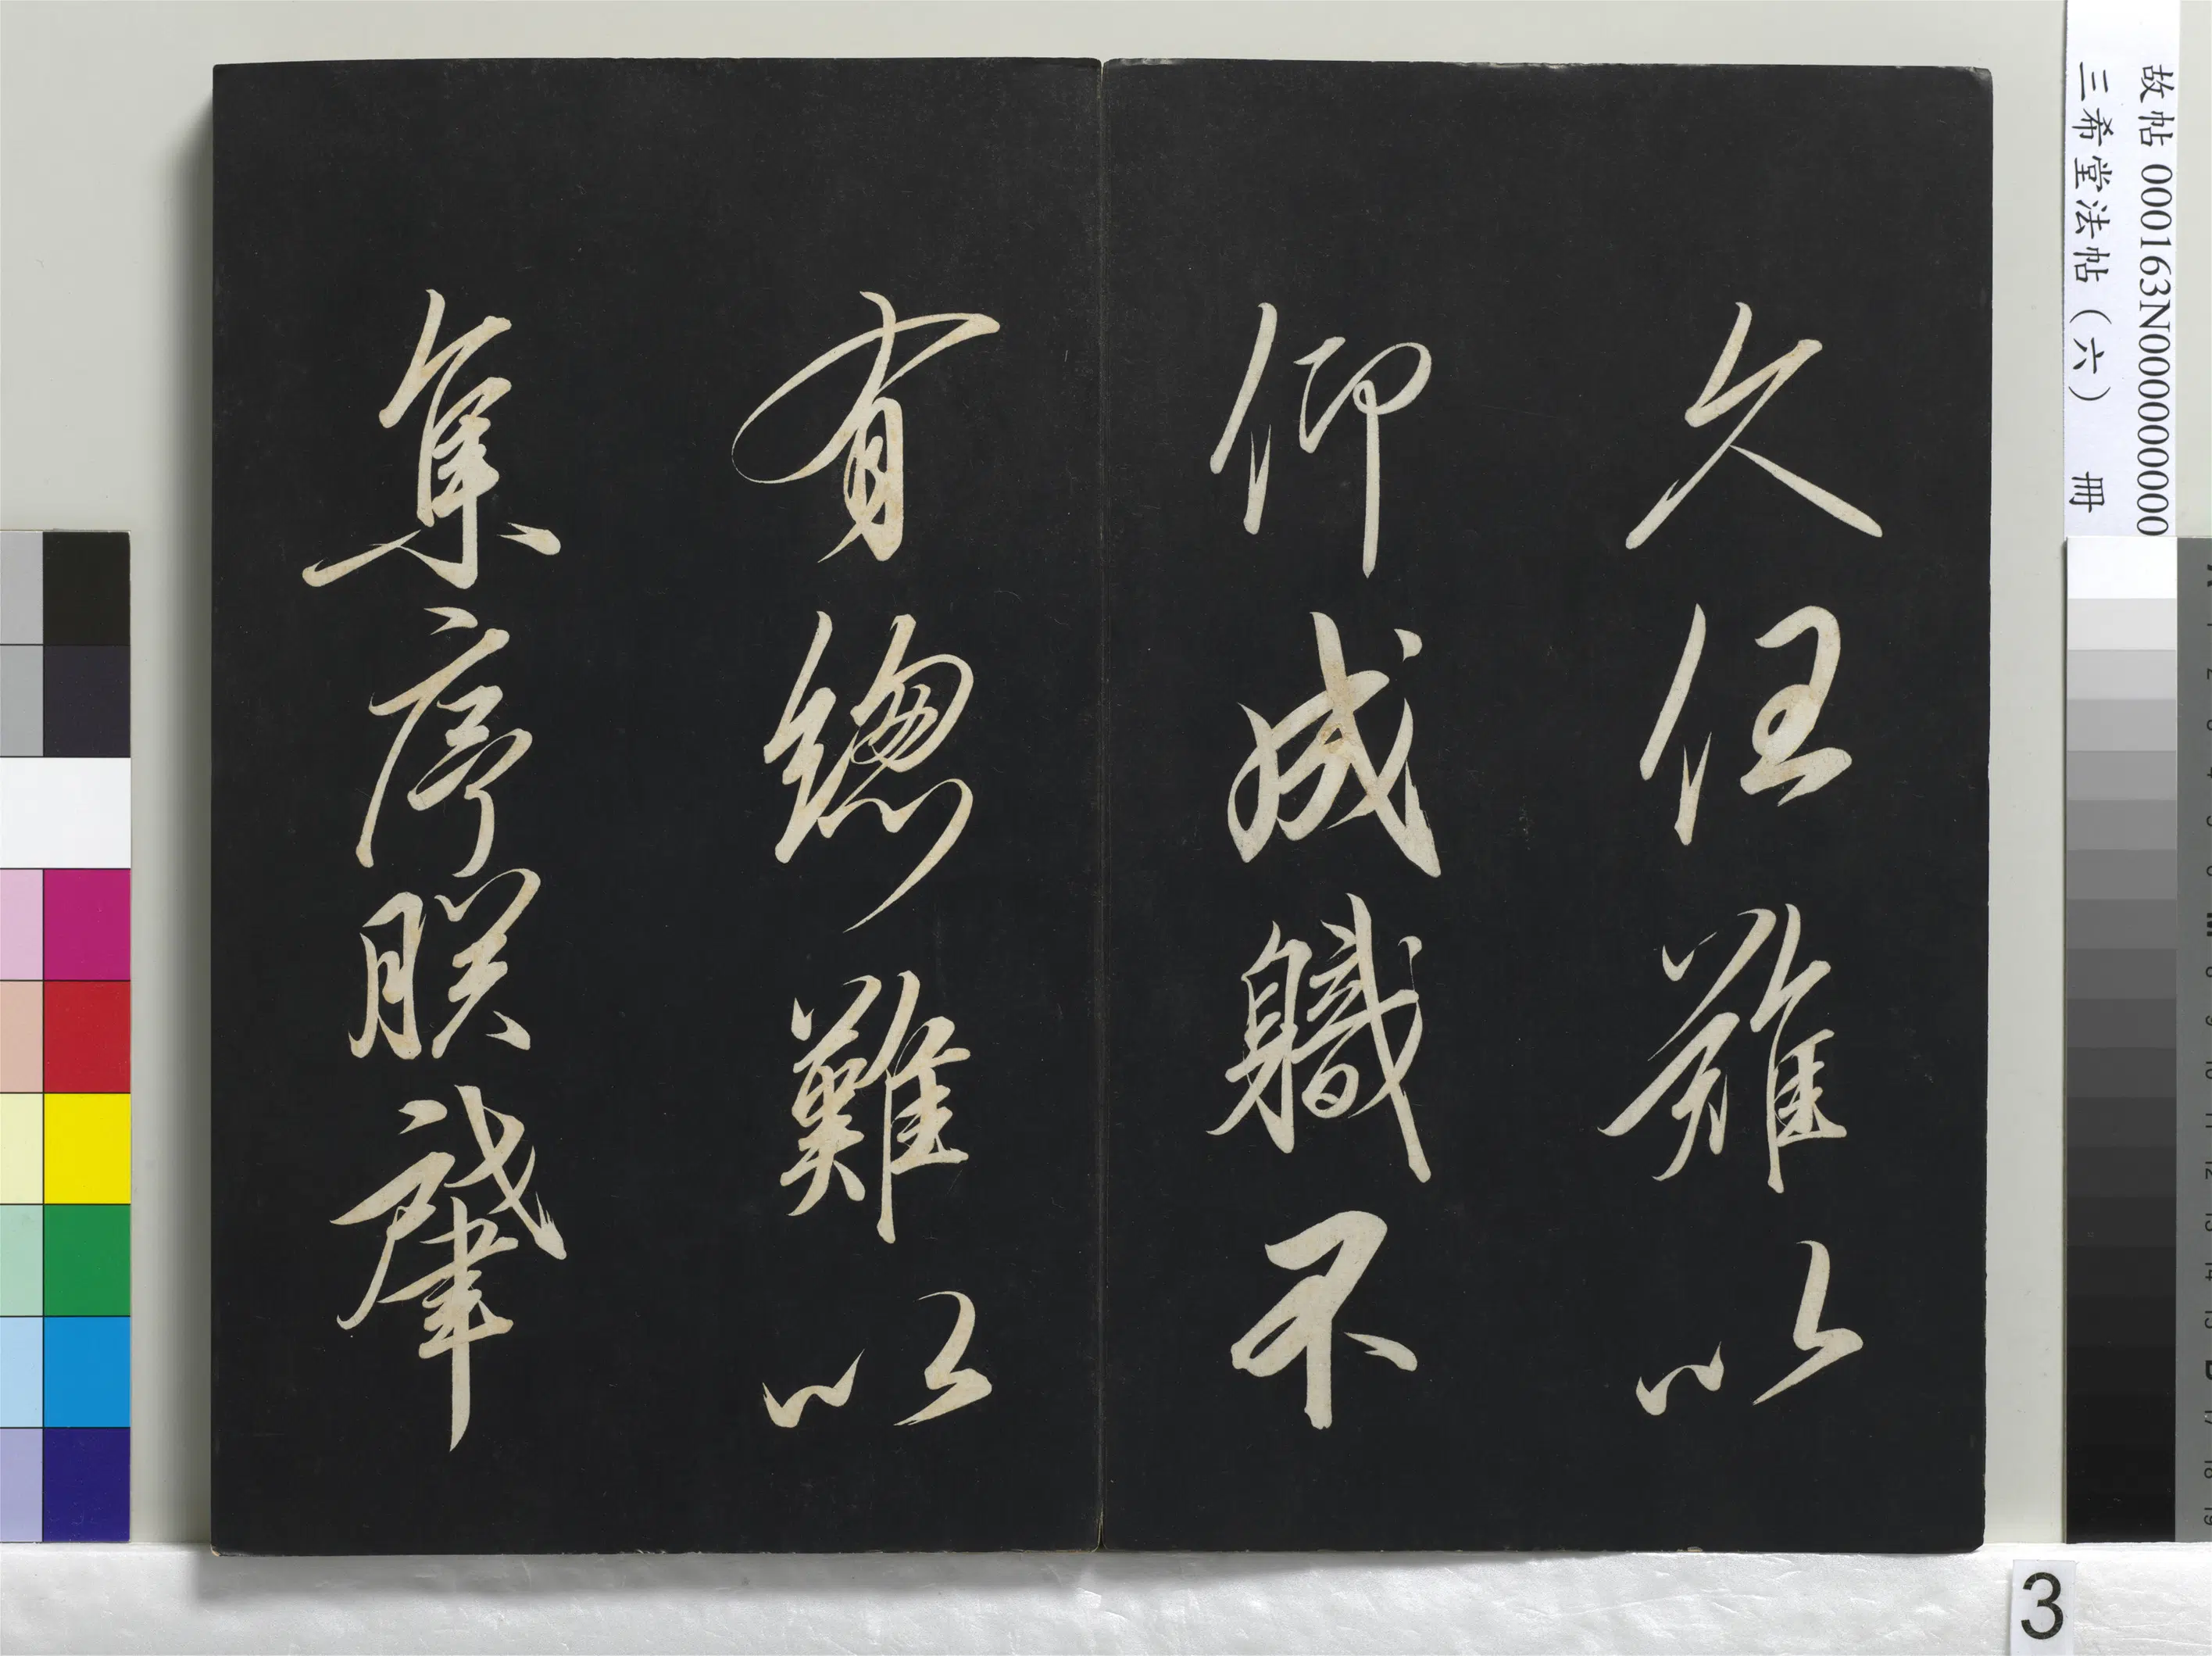 久任難以
仰成軄不
有總難以
集序朕肈
故帖 000163N000000000
三希堂法帖（六） 冊
3